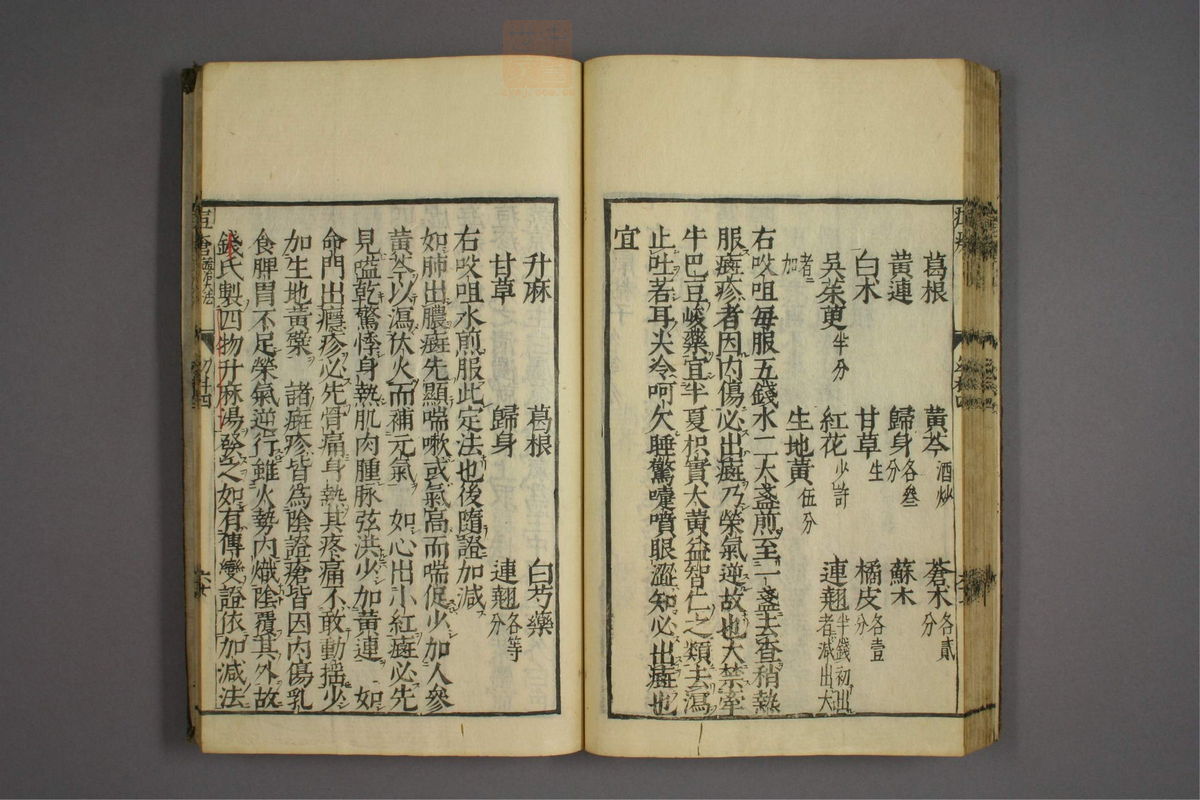 葛根 黃芩酒炒 蒼朮各貳分
黃連 歸身各叄分 蘇木
白朮 甘草生 橘皮各壹分
吳茱萸半分 紅花少許 連翹半錢初出者減出大
者加 生地黃伍分
右㕮咀每服五錢水二大盞煎至一盞去査稍熱
服斑疹者因內傷必出斑乃榮氣逆故也大禁牽
牛巴豆峻藥宜半夏枳實大黃益智仁之類去瀉
止吐若耳尖冷呵欠睡驚嚏噴眼澀知必出斑也
宜
升麻 葛根 白芍藥
甘草 歸身 連翹各等分
右㕮咀水煎服此定法也後隨證加減
如肺出膿斑先顯喘嗽或氣高而喘促少加人參
黃芩以瀉伏火而補元氣 如心出小紅斑必先
見嗌乾驚悸身熱肌肉腫脉弦洪少加黃連 如
命門出癮疹必先骨痛身熱其疼痛不敢動揺少
加生地黃 諸斑疹皆爲陰證瘡皆因內傷乳
食脾胃不足榮氣逆行雖火勢內熾陰覆其外故
錢氏製四物升麻湯發之如有傳變證依加減法
六